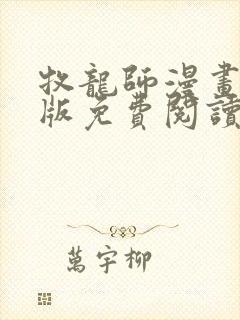 牧龍師漫畫
版免費閱讀
萬宇柳